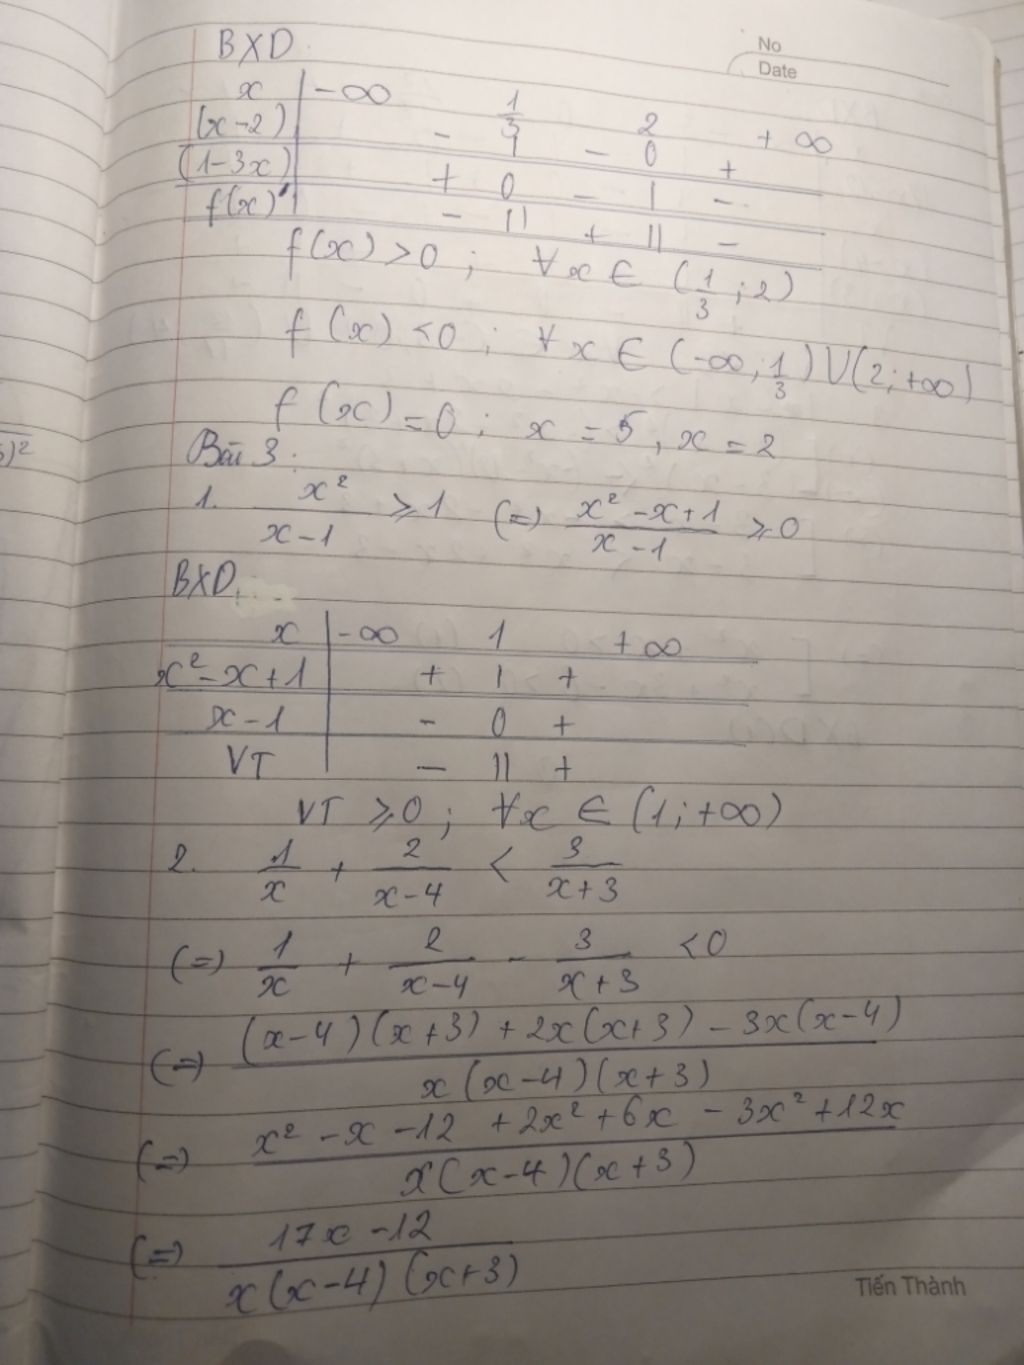 No
Date
BXD
x -∞ 1/3 2 +∞
(x-2) - | - 0 +
(1-3x) + 0 - | -
f(x) - || + || -
f(x) >0 ; ∀x ∈ (1/3 ; 2)
f(x) <0 ; ∀x ∈ (-∞; 1/3) U (2; +∞)
f(x) = 0 ; x = 5, x = 2
Bài 3:
1. x²/(x-1) ⩾ 1 (=) (x² -x+1)/(x-1) ⩾ 0
BXD:
x -∞ 1 +∞
x²-x+1 + | +
x-1 - 0 +
VT - || +
VT ⩾ 0 ; ∀x ∈ (1; +∞)
2. 1/x + 2/(x-4) < 3/(x+3)
(=) 1/x + 2/(x-4) - 3/(x+3) <0
(=) ((x-4)(x+3) + 2x(x+3) - 3x(x-4))/(x(x-4)(x+3))
(=) (x² -x -12 +2x² +6x - 3x² +12x)/(x(x-4)(x+3))
(=) (17x -12)/(x(x-4)(x+3))
Tiến Thành
)²